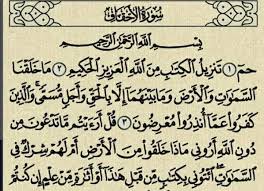 سُورَةُ الأَحْقَافِ
بِسْمِ اللَّهِ الرَّحْمَٰنِ الرَّحِيمِ
حمٓ ۝١ تَنزِيلُ الْكِتَابِ مِنَ اللَّهِ الْعَزِيزِ الْحَكِيمِ ۝٢ مَا خَلَقْنَا
السَّمَاوَاتِ وَالْأَرْضَ وَمَا بَيْنَهُمَا إِلَّا بِالْحَقِّ وَأَجَلٍ مُّسَمًّى وَالَّذِينَ
كَفَرُوا عَمَّا أُنذِرُوا مُعْرِضُونَ ۝٣ قُلْ أَرَأَيْتُم مَّا تَدْعُونَ مِن
دُونِ اللَّهِ أَرُونِي مَاذَا خَلَقُوا مِنَ الْأَرْضِ أَمْ لَهُمْ شِرْكٌ فِي
السَّمَاوَاتِ ائْتُونِي بِكِتَابٍ مِّن قَبْلِ هَٰذَا أَوْ أَثَارَةٍ مِّنْ عِلْمٍ إِن كُنتُمْ